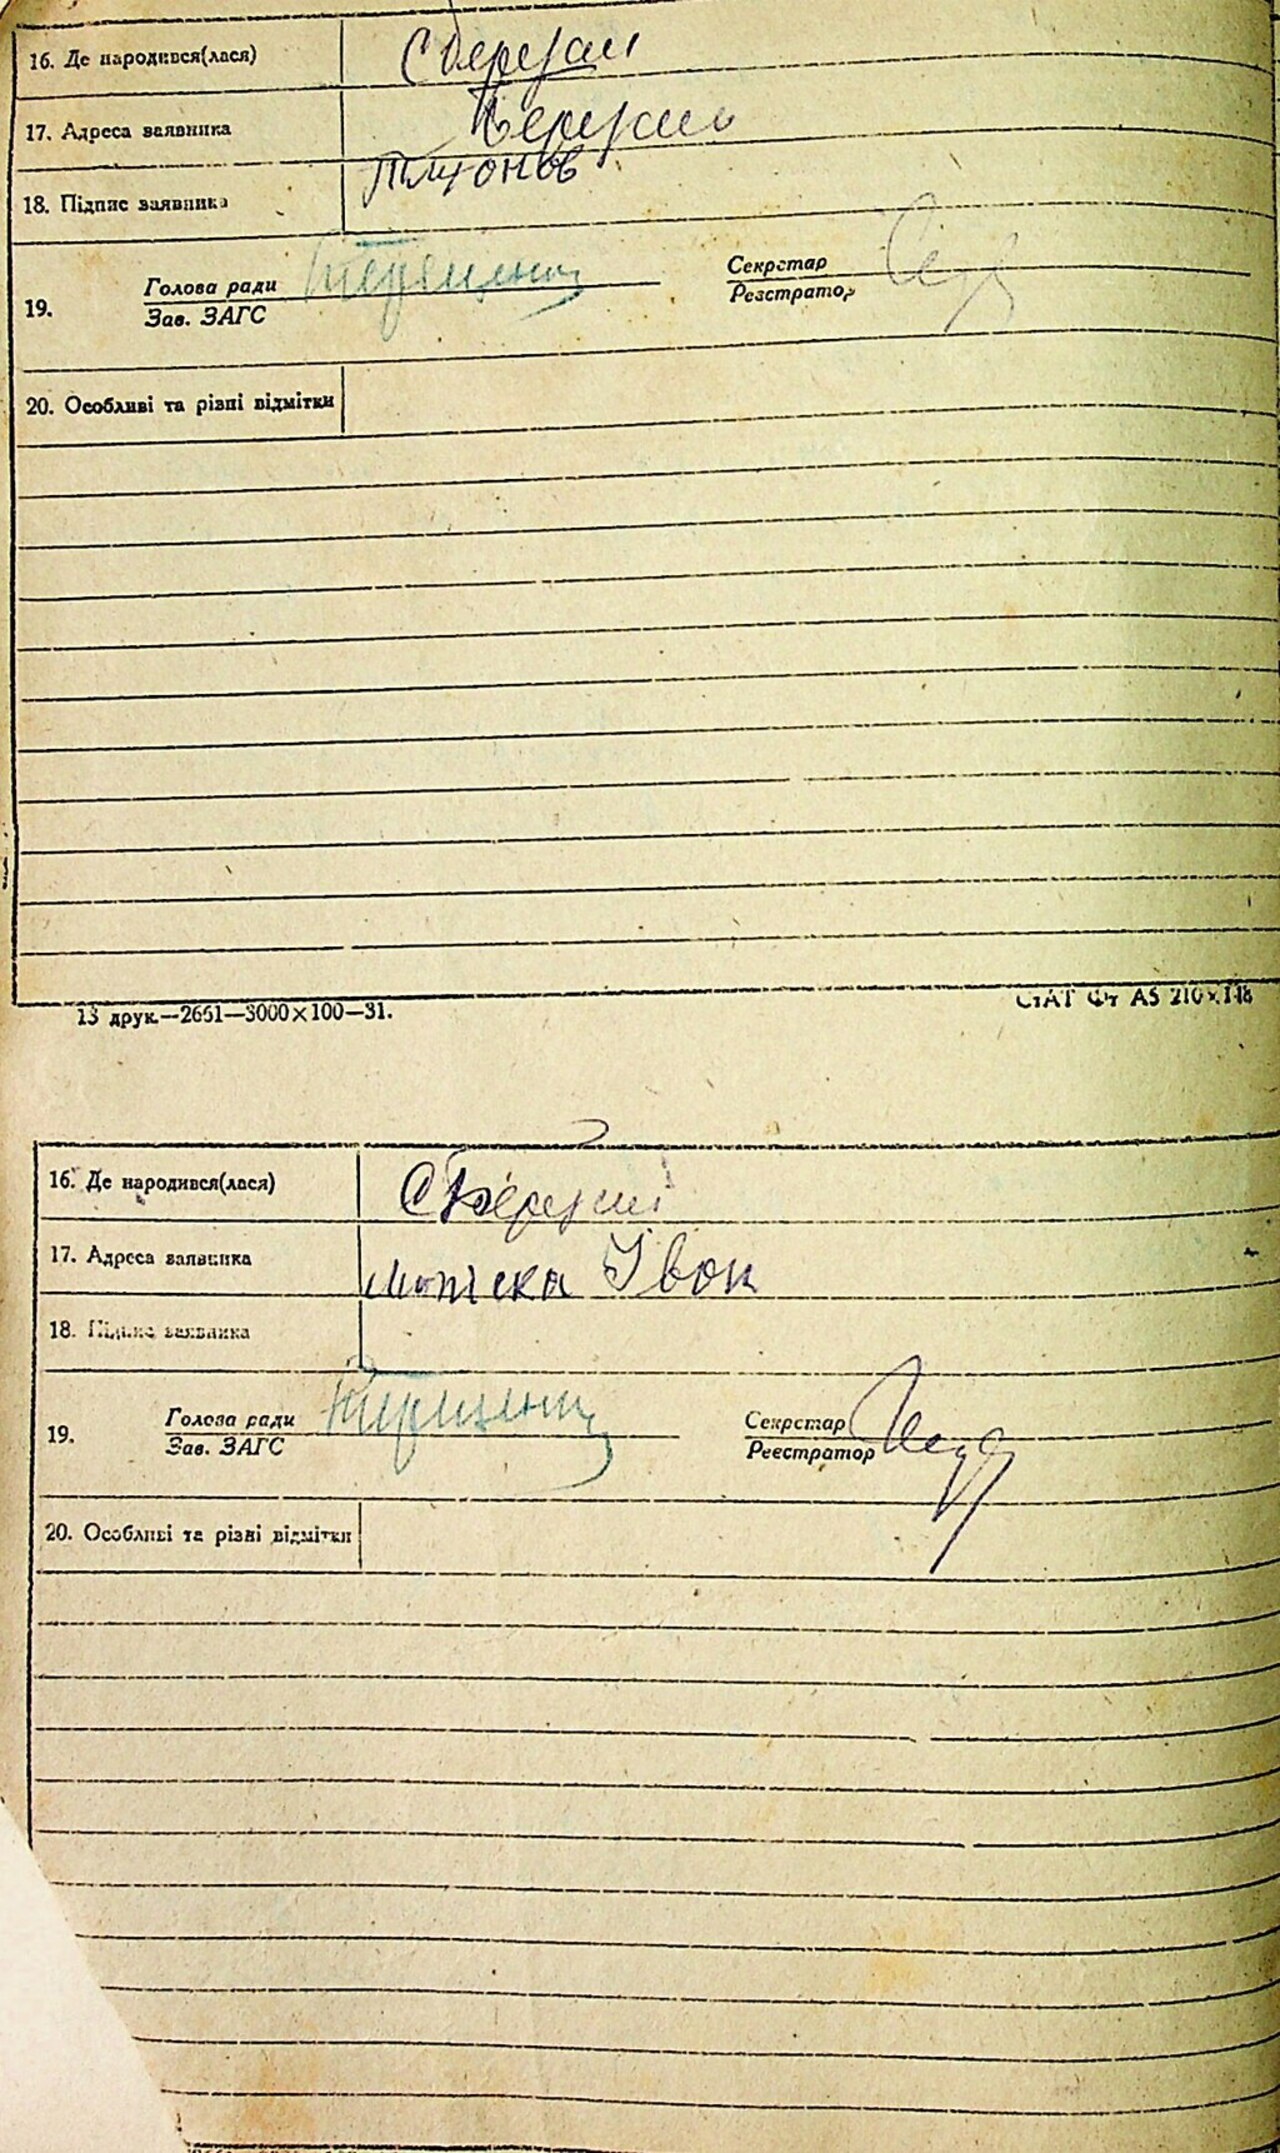 16. Де народився(лася) С Березани
17. Адреса заявника Березань
18. Підпис заявника
19. Голова ради Терещенко Секретар
Зав. ЗАГС Реєстратор
20. Особливі та різні відмітки
13 друк.—2661—3000×100—31. СтАТ Фт А5 210×148
16. Де народився(лася) С Березані
17. Адреса заявника Івон
18. Підпис заявника
19. Голова ради Терещенко Секретар
Зав. ЗАГС Реєстратор
20. Особливі та різні відмітки